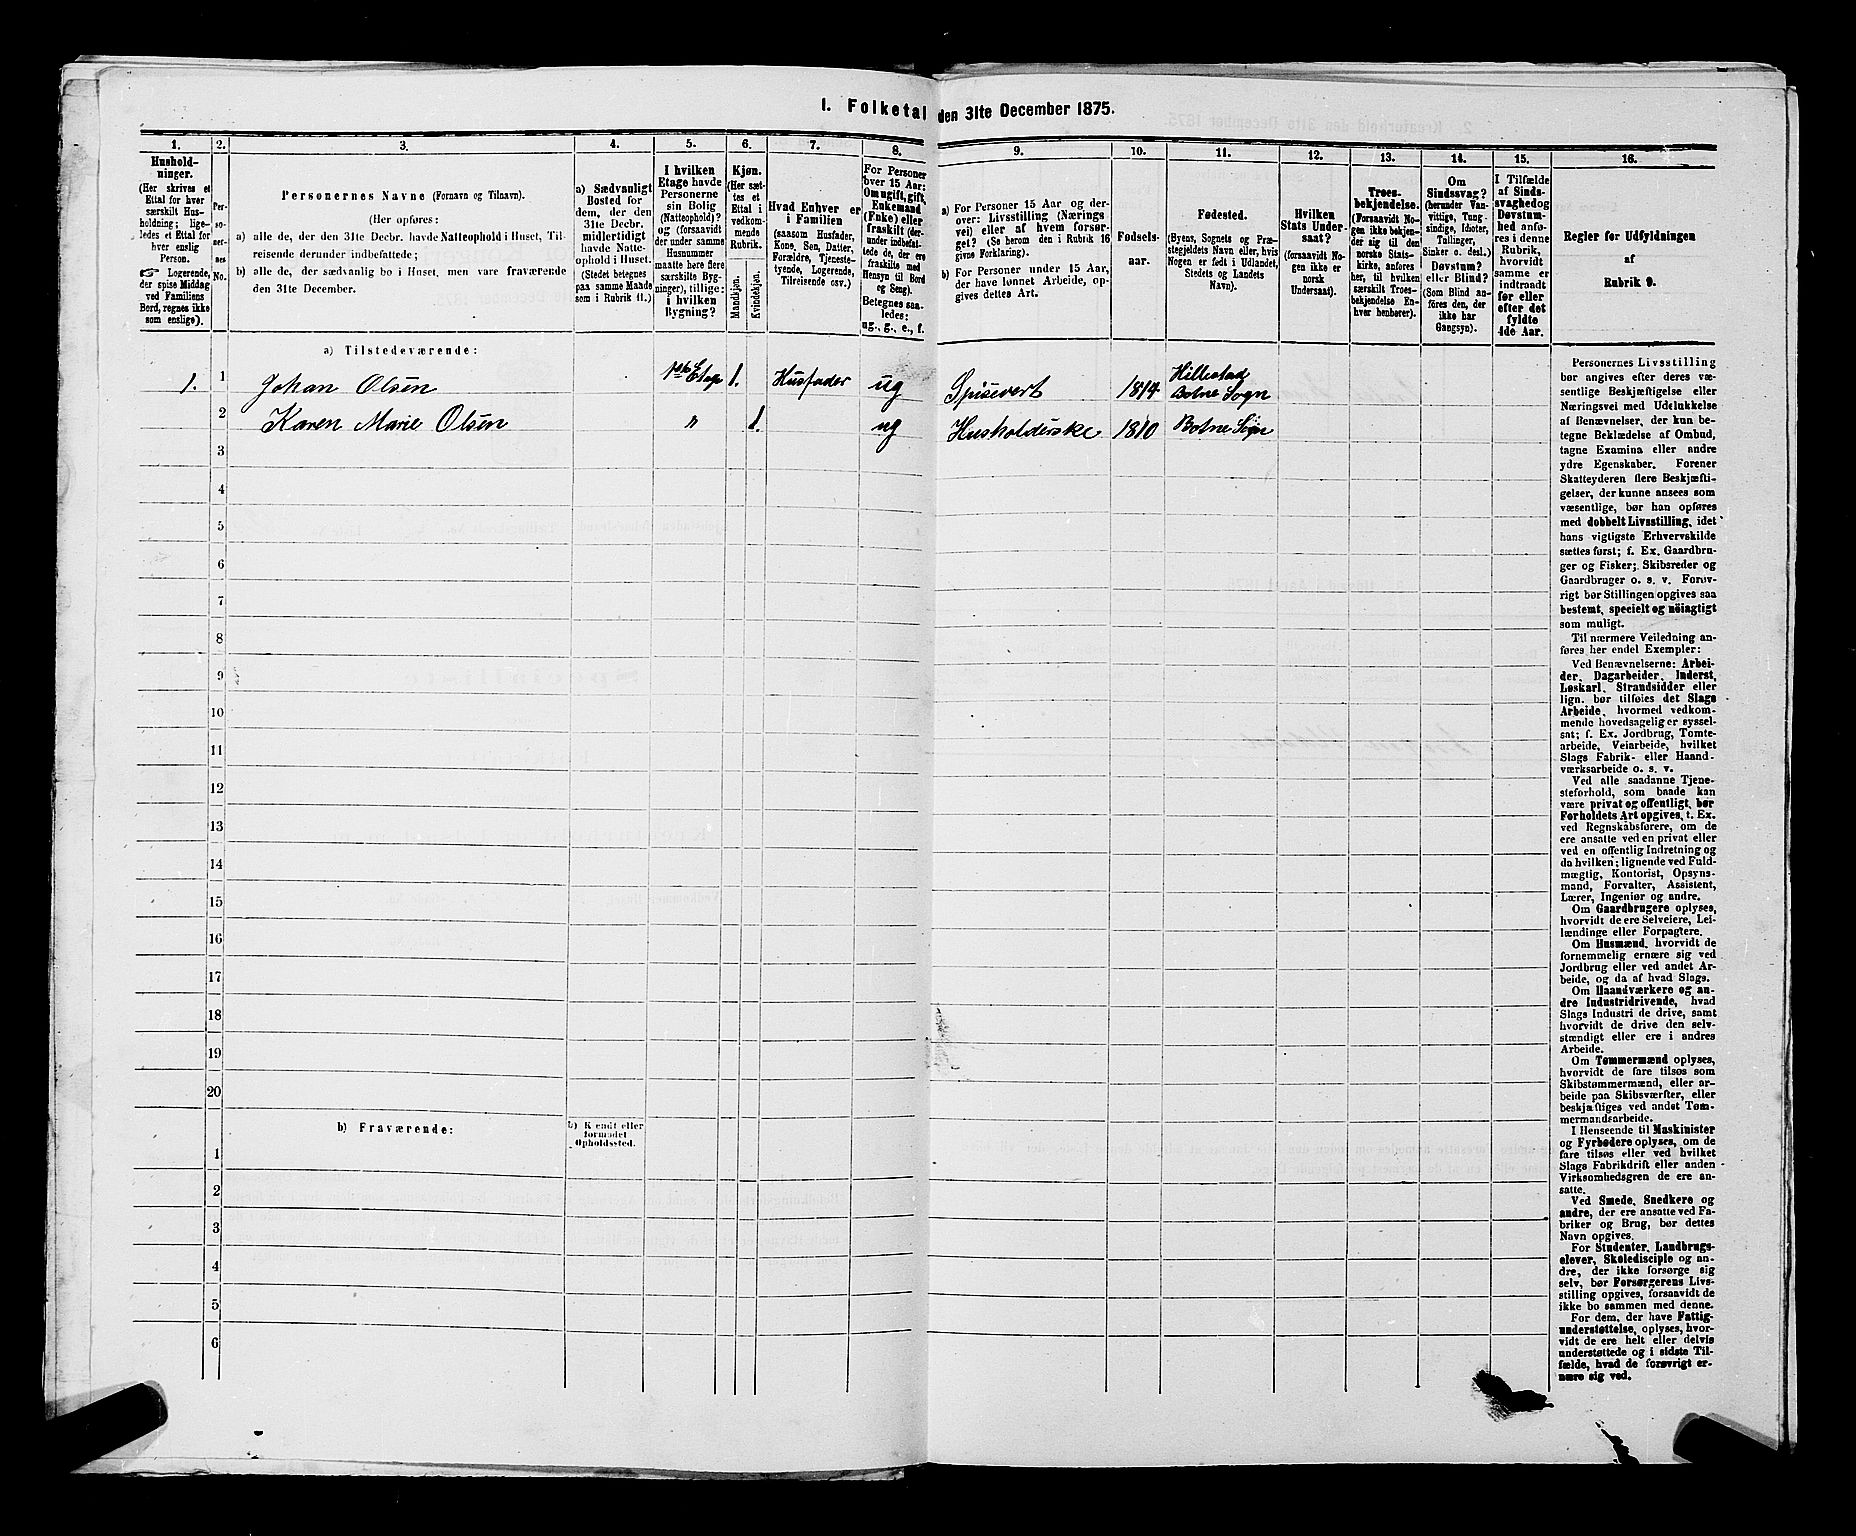 1. Folketal den 31te December 1875.
1.
2.
3.
4.
5.
6.
7.
8.
9.
10.
11.
12.
13.
14.
15.
16.
Hushold-
ninger.
(Her skrives et
Ettal for hver
særskilt Hus-
holdning; lige-
ledes et Ettal for
hver enslig
Person.
☞ Logerende,
der spise Middag
ved Familiens
Bord, regnes ikke
som enslige).
Per-
so-
ner-
nes
No.
Personernes Navne (Fornavn og Tilnavn).
(Her opføres:
a) alle de, der den 31te Decbr. havde Natteophold i Huset, Til-
reisende derunder indbefattede;
b) alle de, der sædvanlig bo i Huset, men vare fraværende
den 31te December.
a) Sædvanligt
Bosted for
dem, der den
31te Decbr.
midlertidigt
havde Natte-
ophold i Huset.
(Stedet betegnes
paa samme Maade
som i Rubrik 11.)
I hvilken
Etage havde
Personerne
sin Bolig
(Natteophold)?
og (forsaavidt
der under samme
Husnummer
maatte høre flere
særskilte Byg-
ninger), tillige:
i hvilken
Bygning?
Kjøn.
(Her sæt-
tes et
Ettal i
vedkom-
mende
Rubrik.
Mandkjøn.
Kvindekjøn.
Hvad Enhver er
i Familien
(saasom Husfader,
Kone, Søn, Datter,
Forældre, Tjeneste-
tyende, Logerende,
Tilreisende osv.)
For Personer
over 15 Aar:
Om ugift, gift,
Enkemand
(Enke) eller
fraskilt (der-
under indbefat-
tede de, der ere
fraskilte med
Hensyn til Bord
og Seng).
Betegnes saa-
ledes:
ug., g., e., f.
a) For Personer 15 Aar og der-
over: Livsstilling (Nærings
vei) eller af hvem forsør-
get? (Se herom den i Rubrik 16
givne Forklaring).
b) For Personer under 15 Aar,
der have lønnet Arbeide, op-
gives dettes Art.
Fødsels-
aar.
Fødested.
(Byens, Sognets og Præ-
stegjeldets Navn eller, hvis
Nogen er født i Udlandet,
Stedets og Landets
Navn).
Hvilken
Stats Under-
saat?
(forsaavidt No-
gen ikke er
norsk
Undersaat).
Troes-
bekjendelse.
(Forsaavidt No-
gen ikke bekjen-
der sig til den
norske Stats-
kirke, anføres
her, til hvilken
særskilt Troes-
bekjendelse En-
hver henhører).
Om
Sindssvag?
(herunder Van-
vittige, Tung-
sindige, Idioter,
Tullinger,
Sinker o. desl.)
Døvstum?
eller Blind?
(Som Blind an-
føres den, der
ikke har
Gangsyn).
I Tilfælde
af Sinds-
svaghed og
Døvstum-
hed anfø-
res i denne
Rubrik,
hvorvidt
samme er
indtraadt
før eller
efter det
fyldte
4de Aar.
Regler for Udfyldningen
af
Rubrik 9.
a) Tilstedeværende:
1. 1 Johan Olsen 1ste Etage 1. Husfader ug Spisevert 1814 Hillestad
Botne Sogn
2 Karen Marie Olsen " 1. ug Husholderske 1810 Botne Sogn
3
4
5
6
7
8
9
10
11
12
13
14
15
16
17
18
19
20
b) Fraværende:
b) Kendt eller
formodet
Opholdssted.
1
2
3
4
5
6
Personernes Livsstilling
bør angives efter deres væ-
sentlige Beskjæftigelse eller
Næringsvei med Udelukkelse
af Benævnelser, der kun be-
tegne Beklædelse af Ombud,
tagne Examina eller andre
ydre Egenskaber. Forener
Skatteyderen flere Beskjæfti-
gelser, der kunne ansees som
væsentlige, bør han opføres
med dobbelt Livsstilling, idet
hans vigtigste Erhvervskilde
sættes først; f. Ex. Gaardbru-
ger og Fisker; Skibsreder og
Gaardbruger o. s. v. Forøv-
rigt bør Stillingen opgives saa
bestemt, specielt og nöiagtigt
som muligt.
Til nærmere Veiledning an-
føres her endel Exempler:
Ved Benævnelserne: Arbei-
der, Dagarbeider, Inderst,
Løskarl, Strandsidder eller
lign. bør tilføies det Slags
Arbeide, hvormed vedkom-
mende hovedsagelig er syssel-
sat; f. Ex. Jordbrug, Tomte-
arbeide, Veiarbeide, hvilket
Slags Fabrik- eller Haand-
værksarbeide o. s. v.
Ved alle saadanne Tjene-
steforhold, som baade kan
være privat og offentligt, bør
Forholdets Art opgives, t. Ex.
ved Regnskabsførere, om de
ere ansatte ved en privat eller
ved en offentlig Indretning og
da hvilken; lignende ved Fuld-
mægtig, Kontorist, Opsyns-
mand, Forvalter, Assistent,
Lærer, Ingeniør og andre.
Om Gaardbrugere oplyses,
hvorvidt de ere Selveiere, Lei-
lændinge eller Forpagtere.
Om Husmænd, hvorvidt de
fornemmelig ernære sig ved
Jordbrug eller ved andet Ar-
beide, og da af hvad Slags.
Om Haandværkere og an-
dre Industridrivende, hvad
Slags Industri de drive, samt
hvorvidt de drive den selv-
stændigt eller ere i andres
Arbeide.
Om Tømmermænd oplyses,
hvorvidt de fare tilsøs som
Skibstømmermænd, eller ar-
beide paa Skibsværfter, eller
beskjæftiges ved andet Tøm-
mermandsarbeide.
I Henseende til Maskinister
og Fyrbødere oplyses, om de
fare tilsøs eller ved hvilket
Slags Fabrikdrift eller anden
Virksomhedsgren de ere an-
satte.
Ved Smede, Snedkere og
andre, der ere ansatte ved Fa-
briker og Brug, bør dettes
Navn opgives.
For Studenter, Landbrugs-
elever, Skoledisciple og an-
dre, der ikke forsørge sig
selv, bør Forsørgerens Livs-
stilling opgives, forsaavidt de
ikke bo sammen med denne.
For dem, der have Fattig-
understøttelse, oplyses, hvor-
vidt de ere helt eller delvis
understøttede og i sidste Til-
fælde, hvad de forøvrigt er-
nære sig ved.